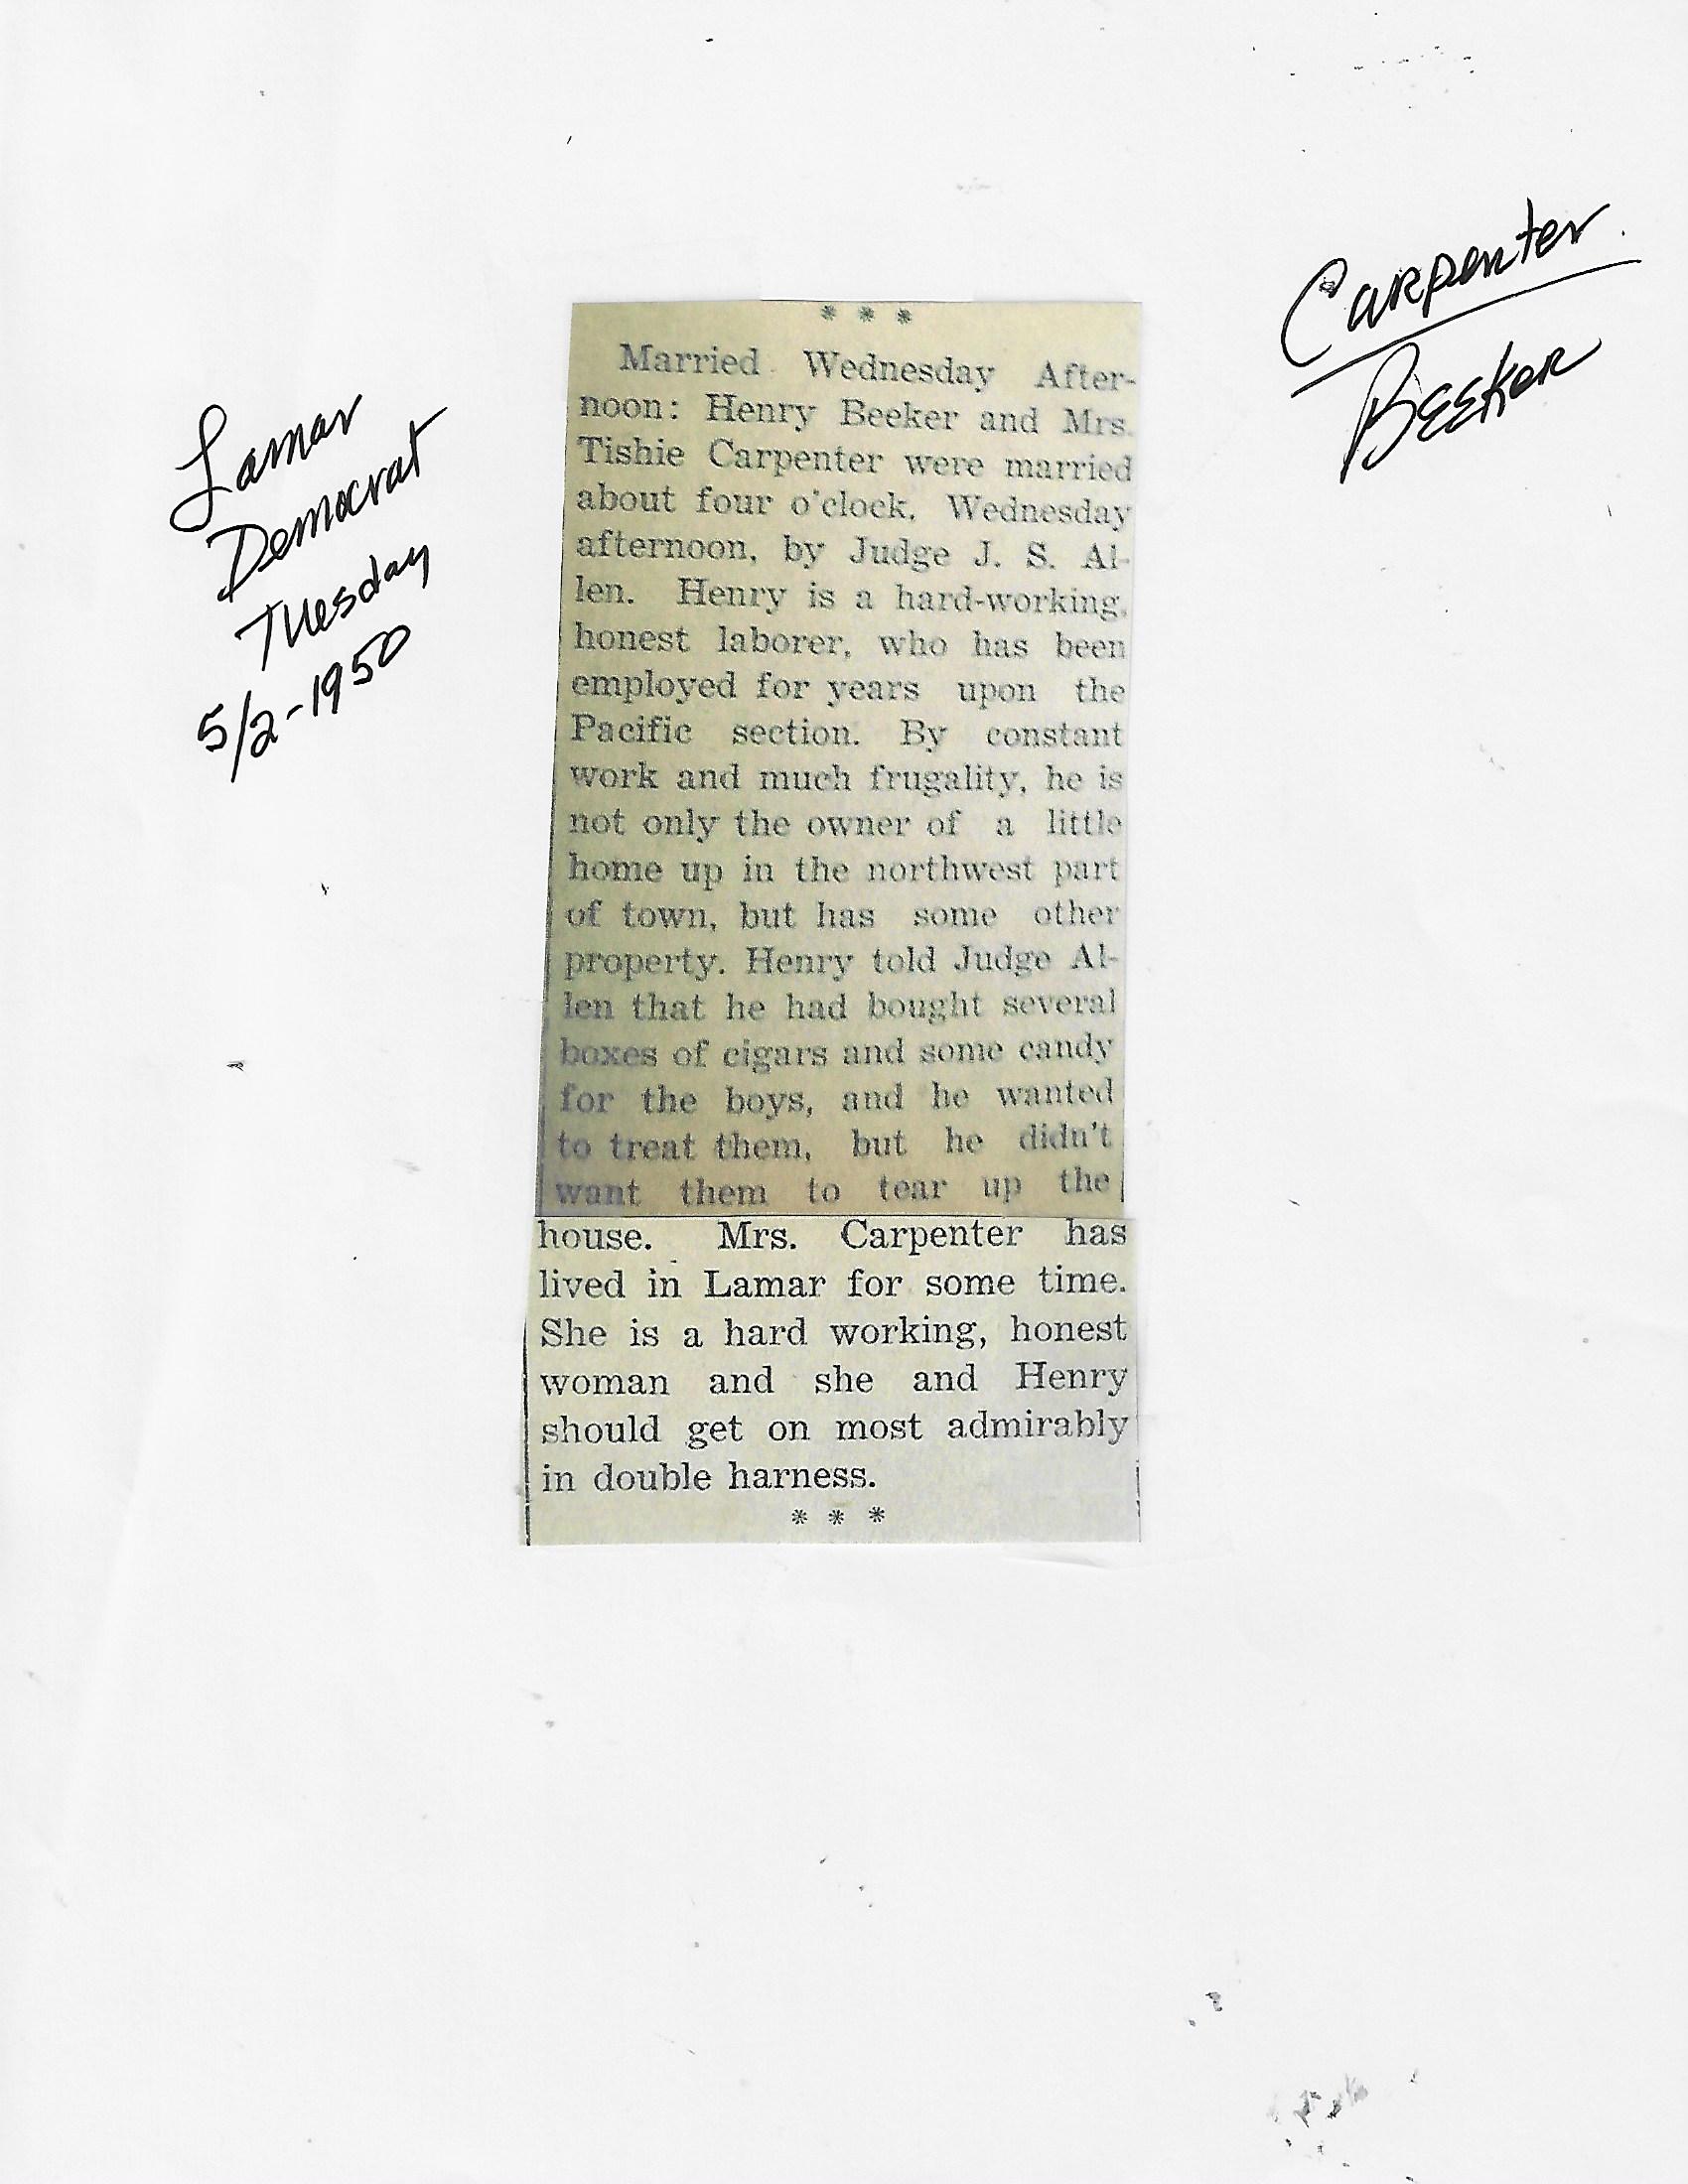 Carpenter
Beeker
Lamar
Democrat
Tuesday
5/2-1950
* * *
Married Wednesday After-
noon: Henry Beeker and Mrs.
Tishie Carpenter were married
about four o'clock, Wednesday
afternoon, by Judge J. S. Al-
len. Henry is a hard-working,
honest laborer, who has been
employed for years upon the
Pacific section. By constant
work and much frugality, he is
not only the owner of a little
home up in the northwest part
of town, but has some other
property. Henry told Judge Al-
len that he had bought several
boxes of cigars and some candy
for the boys, and he wanted
to treat them, but he didn't
want them to tear up the
house. Mrs. Carpenter has
lived in Lamar for some time.
She is a hard working, honest
woman and she and Henry
should get on most admirably
in double harness.
* * *